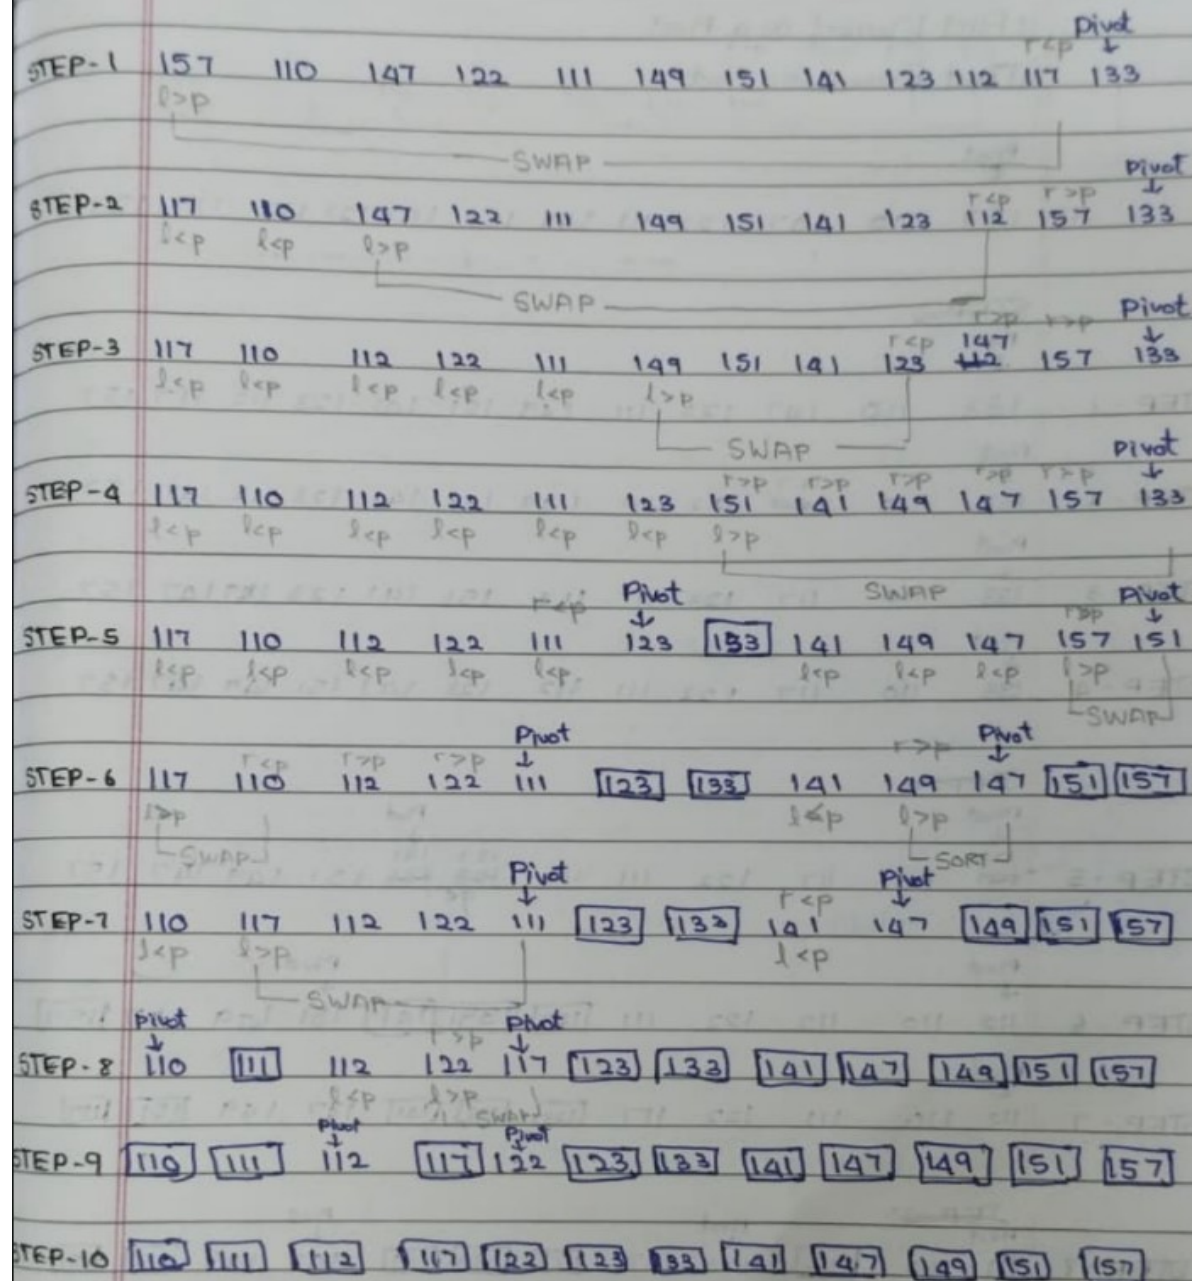 Pivot
r<p ↓
STEP-1 157 110 147 122 111 149 151 141 123 112 117 133
l>p
SWAP
Pivot
r<p r>p ↓
STEP-2 117 110 147 122 111 149 151 141 123 112 157 133
l<p l<p l>p
SWAP
Pivot
r>p r>p ↓
r<p 147
STEP-3 117 110 112 122 111 149 151 141 123 112 157 133
l<p l<p l<p l<p l<p l>p
SWAP
Pivot
r>p r>p r>p r>p r>p ↓
STEP-4 117 110 112 122 111 123 151 141 149 147 157 133
l<p l<p l<p l<p l<p l<p l>p
SWAP
r<p Pivot ↓ r>p Pivot ↓
STEP-5 117 110 112 122 111 123 133 141 149 147 157 151
l<p l<p l<p l<p l<p l<p l<p l<p l>p
SWAP
Pivot Pivot
r<p r>p r>p ↓ r>p ↓
STEP-6 117 110 112 122 111 123 133 141 149 147 151 157
l>p l<p l>p
SWAP SORT
Pivot Pivot
↓ r<p ↓
STEP-7 110 117 112 122 111 123 133 141 147 149 151 157
l<p l>p l<p
SWAP
Pivot Pivot
↓ r>p ↓
STEP-8 110 111 112 122 117 123 133 141 147 149 151 157
l<p l>p
SWAP
Pivot Pivot
↓ ↓
STEP-9 110 111 112 117 122 123 133 141 147 149 151 157
STEP-10 110 111 112 117 122 123 133 141 147 149 151 157